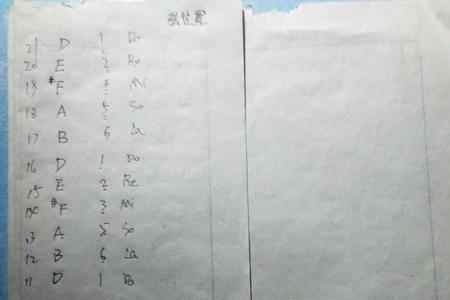 21 D 1 Do
20 E 2 Re
19 #F 3 Mi
18 A 5 So
17 B 6 La
16 D 1 Do
15 E 2 Re
14 #F 3 Mi
13 A 5 So
12 B 6 La
11 D 1 Do